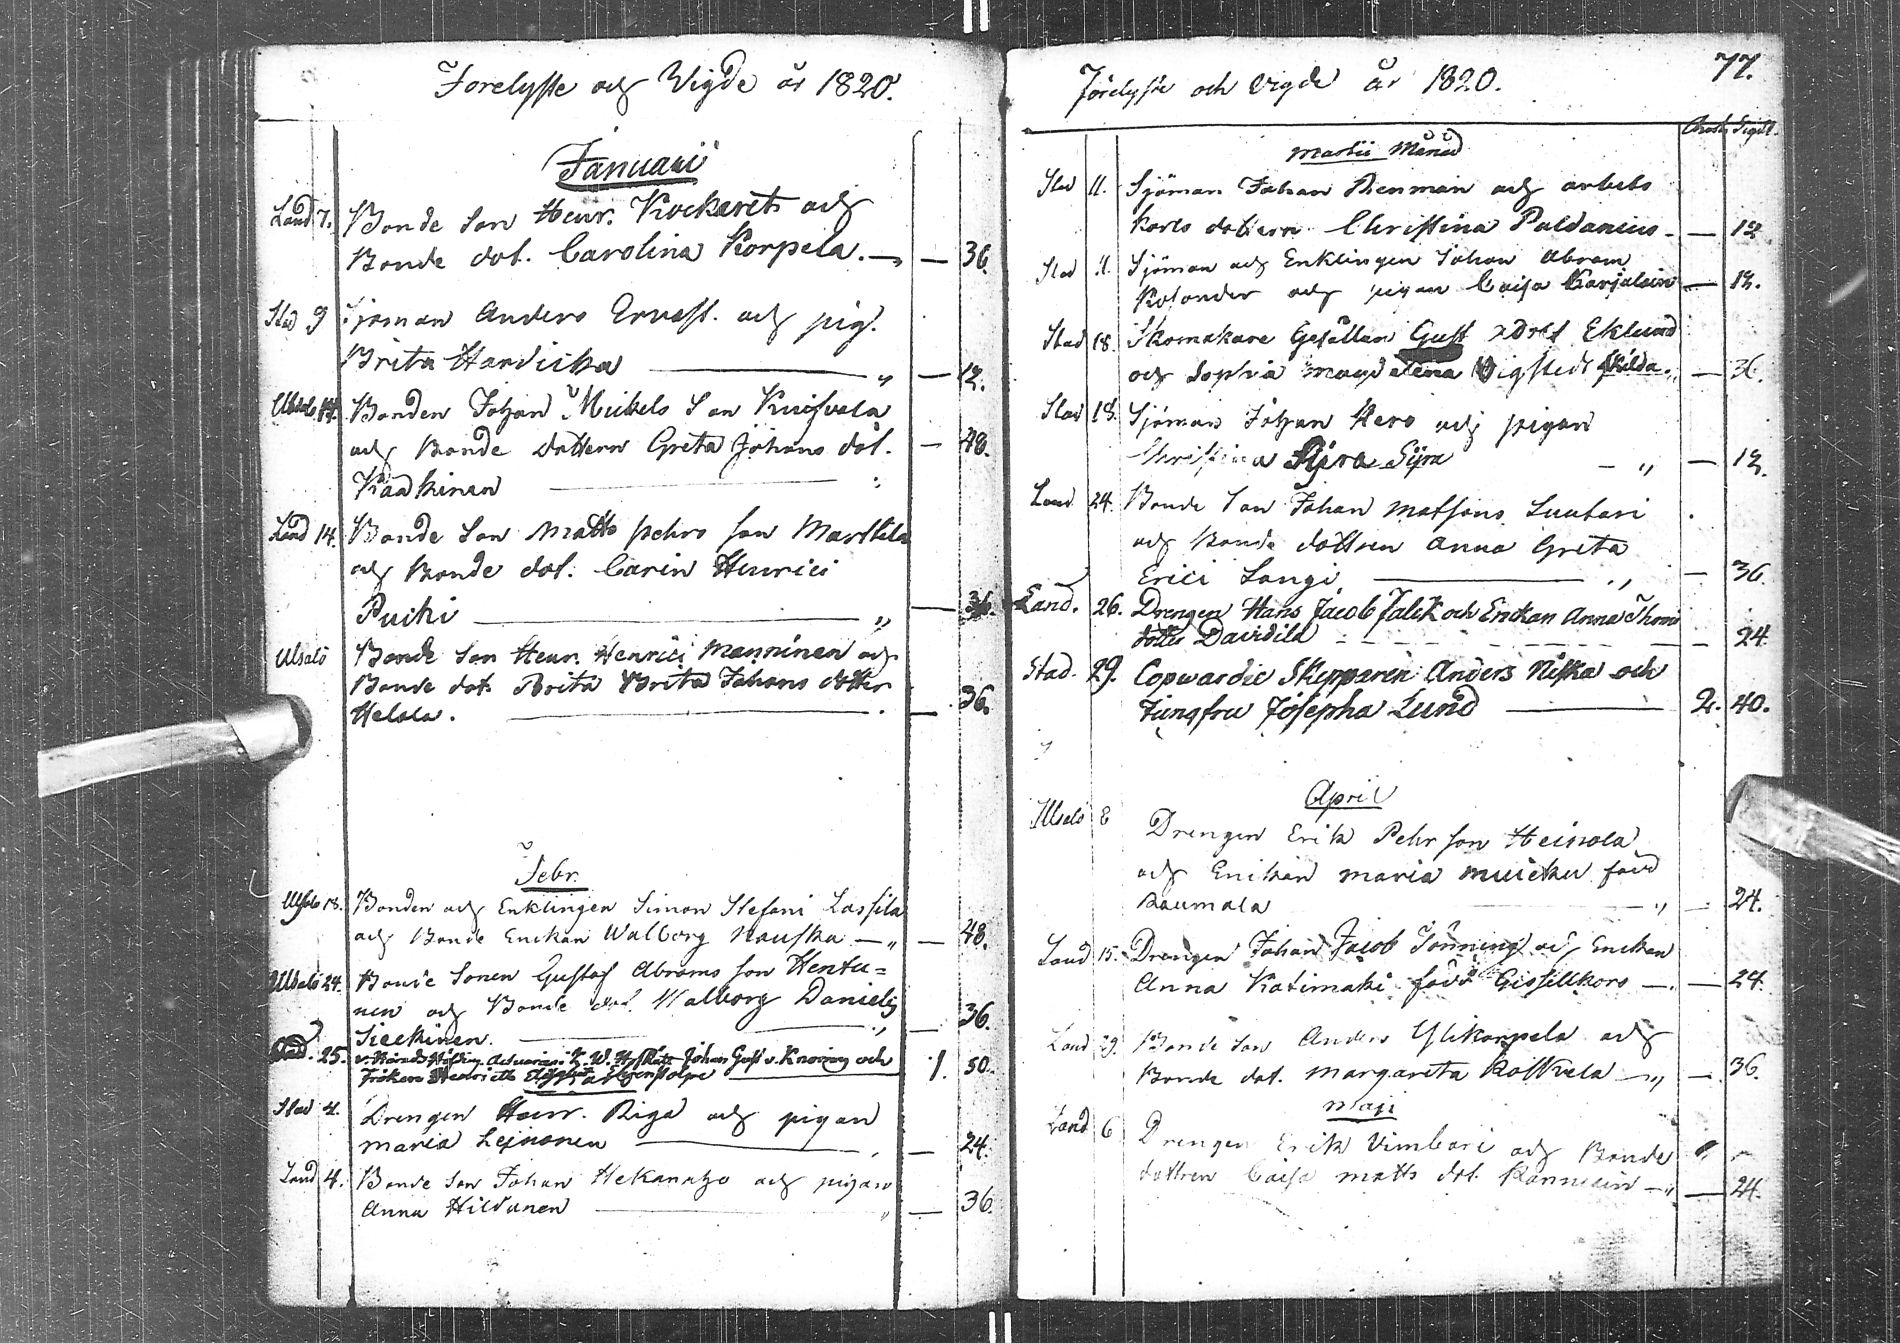 Forelyste och Vigde år 1820.
Januarii
Land 7. Bonde Son Henr. Kockarets och
Bonde dot. Carolina Korpela. — 36.
Stad 9 Sjöman Anders Ervast. och pig.
Brita Hardicka — 12.
14. Bonden Johan Mickels Son Kuifvala
och Bonde dottern Greta Johans dot. — 48.
Kaakinen
Land 14. Bonde Son Matts Pehrs Son Marttila
och Bonde dot. Carin Henrici
Pucki — 36.
Ulsalö Bonde Son Henr. Henrici Manninen och
Bonde dot. Brita Brita Johans dotter
Helala. — 36.
Febr.
18. Bonden och Enklingen Simon Stefani Lassila
och Bonde Enckan Walborg Nauska — 48.
Ulsalö 24. Bonde Sonen Gustaf Abrams Son Hentu=
nen och Bonde dot. Walborg Daniels
Sieckinen. — 36.
25. Johan Gust. v. Knorring och
Fröken Hedrietta Ehrenstolpe 1. 50.
Stad 4. Drengen Henr. Riga och pigan
Maria Leinonen — 24.
Land 4. Bonde Son Johan Hekanaho och pigan
Anna Hildunen — 36.
Förelyste och Vigde år 1820.
77.
Martii Månad
Stad 11. Sjöman Johan Renman och arbets
Karls dottern Christina Paldanius — 12
Stad 11. Sjöman och Enklingen Johan Abram
Kosander och pigan Caisa Karjalain — 12.
Stad 18. Skomakare Gesällen Gust Adolf Eklund
och Sophia Magdalena Wigstedt skilda — 36.
Stad 18. Sjöman Johan Hero och pigan
Christina Syra — 12.
Land 24. Bonde Son Johan Matsons Luutari
och Bonde dottren Anna Greta
Erici Langi — 36.
Land. 26. Drengen Hans Jacob Falck och Enckan Anna Thoms
dotter Davidila — 24.
Stad. 29. Copwardie Skepparen Anders Niska och
Jungfru Josepha Lund — 2. 40.
April
8 Drengen Erik Pehr Son Heinola
och Enckan Maria Muicku född
Raumala — 24.
Land 15. Drengen Johan Jacob Tönning och Encken
Anna Katimaki född Gissellkors — 24.
Land 29. Bonde Son Anders Ylikorpela och
Bonde dot. Margareta Kottvela — 36.
Maji
Land 6 Drengen Erik Vimbari och Bonde
dottren Caisa Matts dot. — 24.